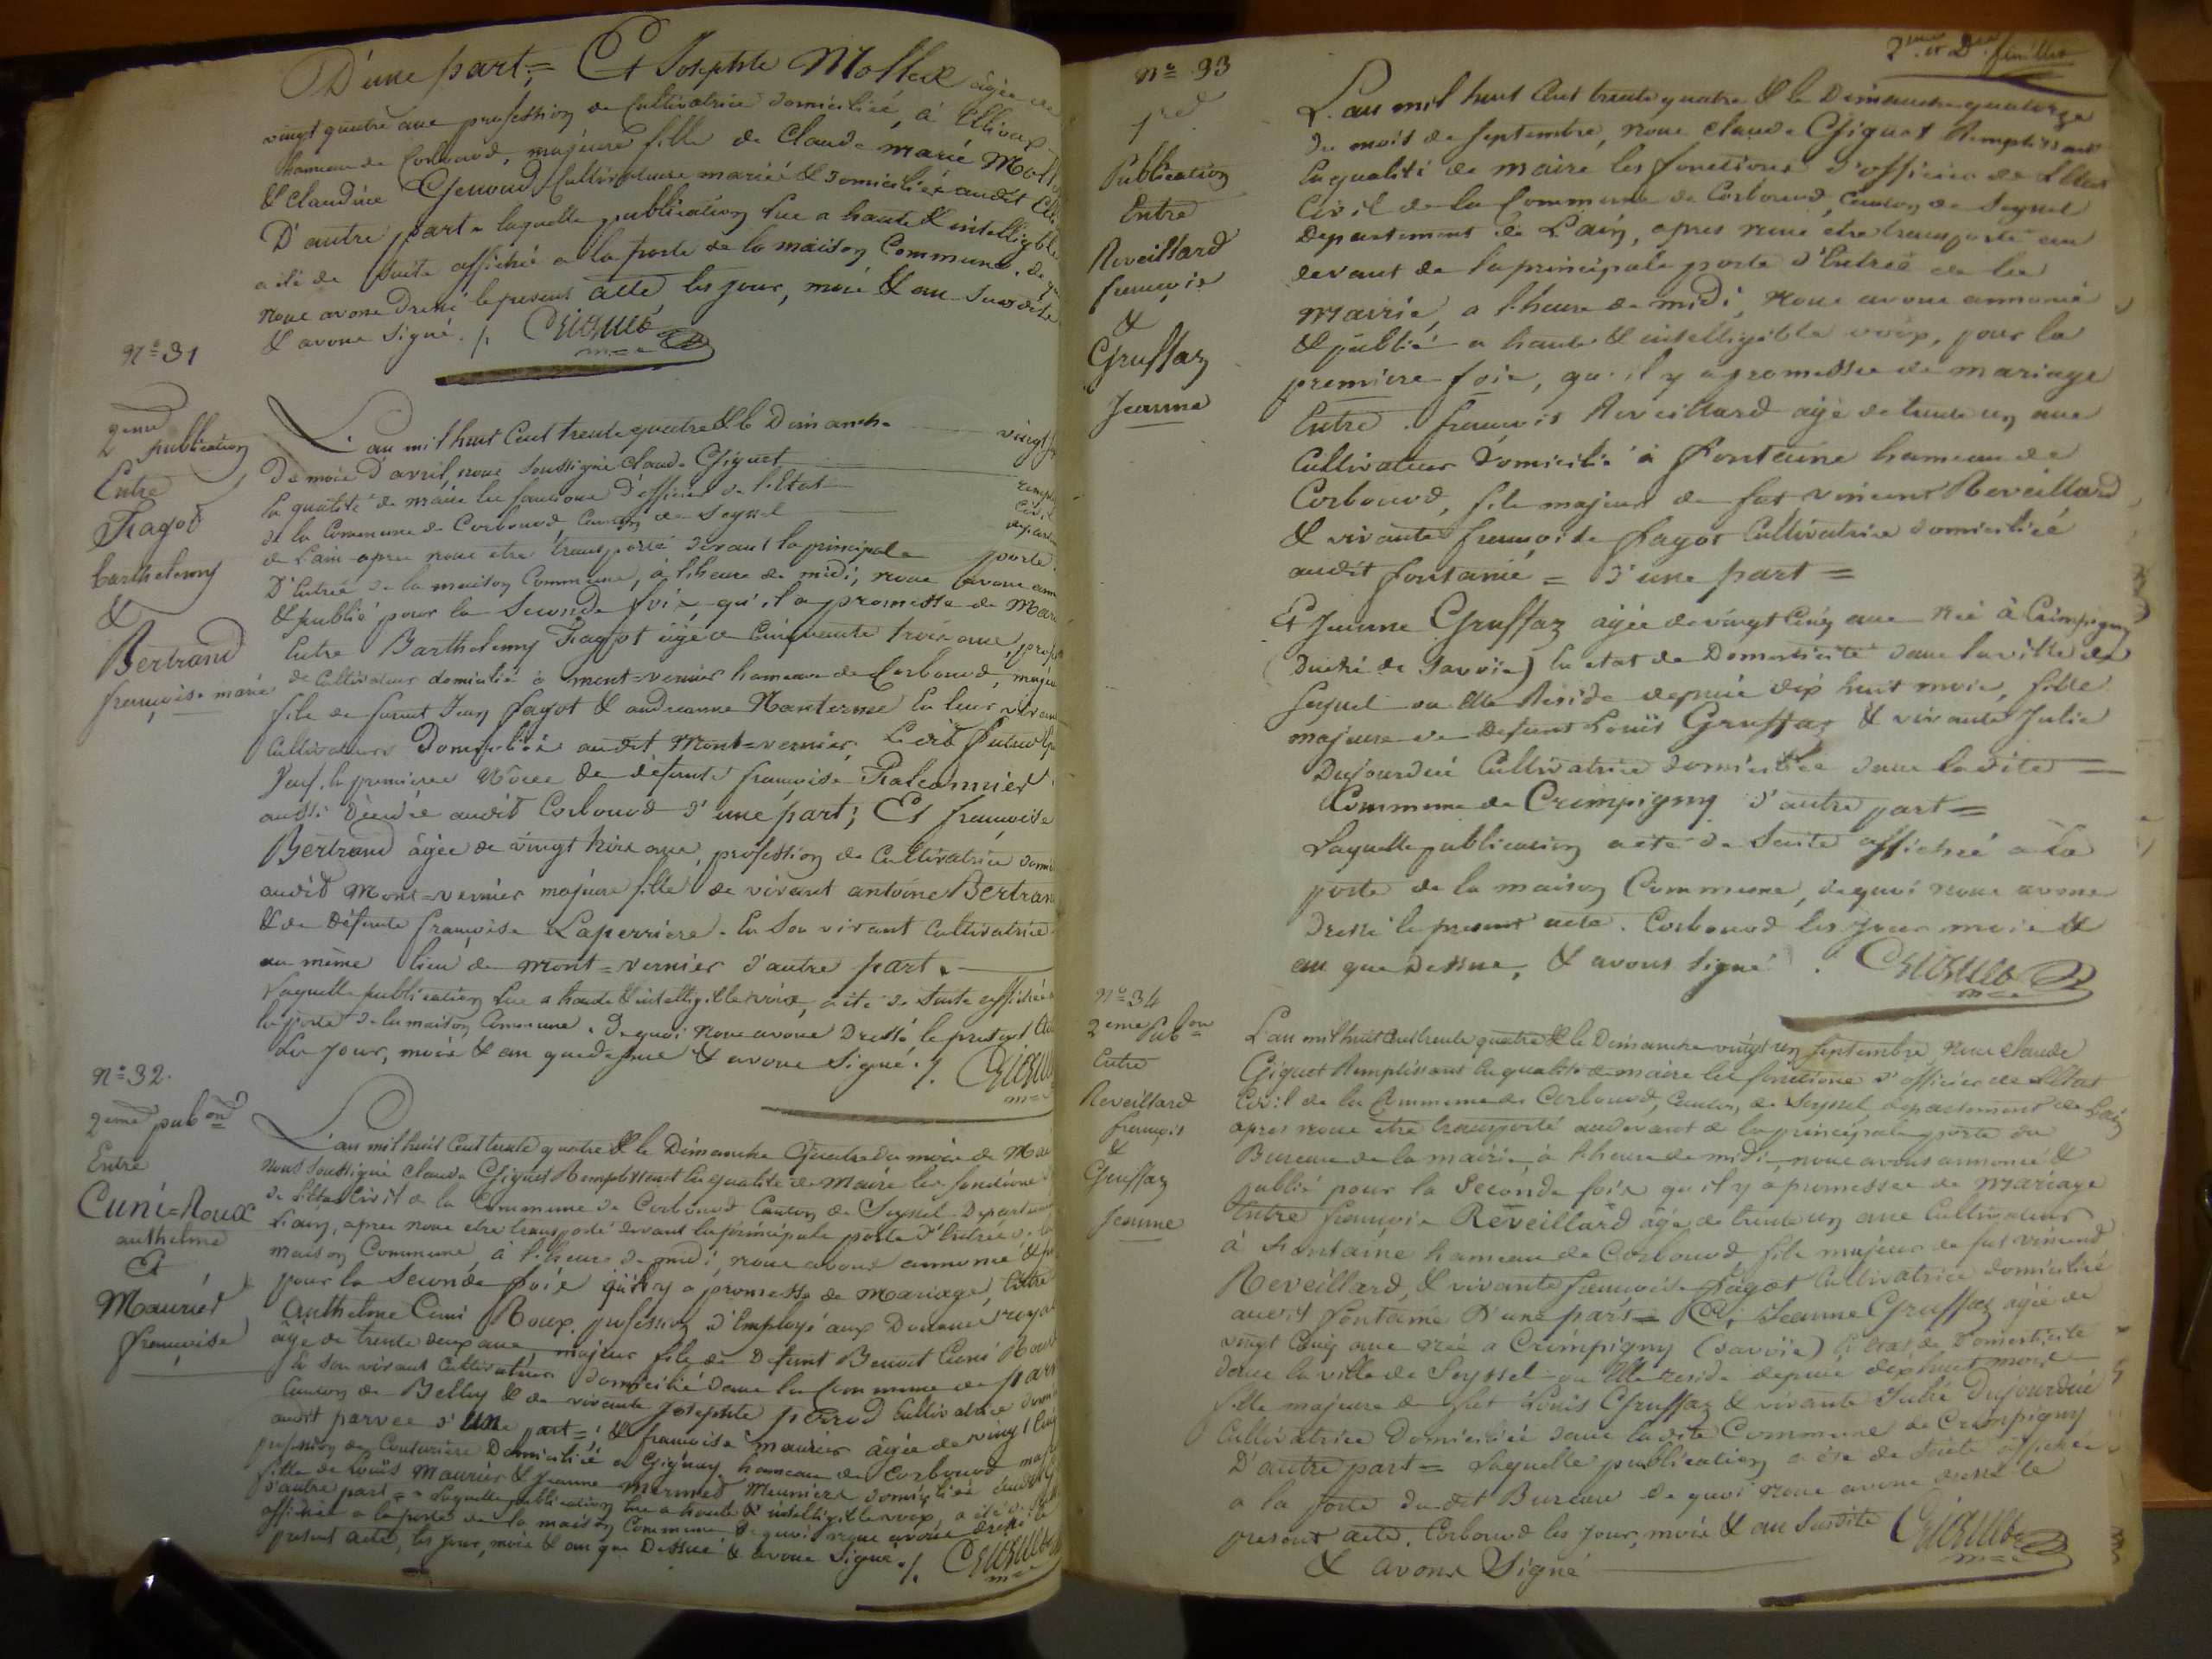 D'une part, = Et Josephte Mollex âgée de
vingt quatre ans profession de Cultivatrice domiciliée, à
hameau de Corbonod, majeure fille de Claude marie
& Claudine Genoud Cultivateurs mariés & domiciliés audit
D'autre part = laquelle publication lue a haute & intelligible
a été de suite affichée a la porte de la maison Commune. de
nous avons Dressé le present acte, les jour, mois & an susdits
& avons signé. /. Giguet
m=e
N° 31
2eme publication
Entre
Fagot
barthelemy
&
Bertrand
françoise marie
L'an mil huit Cent trente quatre & le Dimanche vingt
Du mois d'avril, nous soussigné claude Giguet
la qualité de maire les fonctions d'officier de l'Etat Civil
de la Commune de Corbonod, Canton de Seyssel
de Lain apres nous etre transporté devant la principale porte
D'Entrée de la maison Commune, à l'heure de midi, nous avons
& publié pour la Seconde fois qu'il a promesse de
Entre Barthelemy Fagot âgé de Cinquante trois ans,
de Cultivateur domicilié à mont=vernier hameau de Corbonod,
fils de furent Jean fagot & andreanne Nanterme En leur
Cultivateurs Domiciliés audit Mont=vernier Ledit futur
Veuf En premieres Nôces de défunte françoise Falconnier
aussi Décédée audit Corbonod d'une part; Et françoise
Bertrand âgée de vingt trois ans, profession de Cultivatrice
audit Mont=vernier majeure fille de vivant antoine
& de Défunte françoise Laperriere. En Son vivant Cultivatrice
au même lieu de mont=vernier d'autre part.
Laquelle publication Lue a haute & intelligible voix, a été de suite affichée
la porte de la maison Commune. De quoi Nous avons Dressé le present
Les Jour, mois & an que dessus & avons Signé. /.
N° 32.
2eme pubon
Entre
Cuni=Roux
anthelme
Et
Maurier
françoise
L'an mil huit Cent trente quatre & le Dimanche Quatre du mois de
Nous soussigné Claude Giguet Remplissant la qualité de Maire les fonctions
de l'Etat Civil de la Commune de Corbonod Canton de Seyssel Departement
L'ain, apres nous etre transporté devant la principale porte d'Entrée de la
maison Commune, à l'heure de midi, nous avons annoncé &
pour la Seconde fois qu'il y a promesse de Mariage, Entre
Anthelme Cuni Roux. profession d'Employé aux Douanes
âgé de trente deux ans, majeur fils de Defunt Benoit Cuni
En son vivant Cultivateur domicilié dans la Commune de
Canton de Belley & de vivante Josephte Perrod Cultivatrice
audit parves d'une part = & françoise maurier âgée de vingt
profession de Couturiere Domiciliée à Gignay hameau de Corbonod
fille de Louis Maurier & Jeanne Mermet Meuniers domiciliés
d'autre part = Laquelle publication lue a haute & intelligible voix, a été de
affichée a la porte de la maison Commune de quoi nous avons dressé le
present acte, les jour, mois & an que Dessus & avons Signé. /. Giguet
m=e
2me et Der feuillet
N° 33
1re
Publication
Entre
Reveillard
françois
&
Gruffaz
Jeanne
L'an mil huit Cent trente quatre & le Dimanche quatorze
du mois de Septembre, nous claude Giguet Remplissant
la qualité de maire les fonctions d'officier de L'Etat
Civil de la Commune de Corbonod, Canton de Seyssel
Departement de L'ain, apres nous etre transporté au
devant de la principale porte d'Entrée de la
mairie, a l'heure de midi, nous avons annoncé
& publié a haute & intelligible voix, pour la
premiere fois, qu'il y a promesse de mariage
Entre. françois Reveillard âgé de trente un ans
Cultivateur Domicilié à Fontaine hameau de
Corbonod, fils majeur de fut vincent Reveillard
& vivante françoise fagot Cultivatrice domiciliée
audit fontaine = d'une part =
Et Jeanne Gruffaz âgée de vingt Cinq ans née à Crimpigny
(Duché de Savoie) En etat de Domesticité dans la ville de
Seyssel ou elle Reside depuis dix huit mois, fille
majeure de defunt Louis Gruffaz & vivante Julie
Dujourdui Cultivatrice domiciliée dans ladite =
Commune de Crimpigny d'autre part =
Laquelle publication a eté de Suite affichée a la
porte de la maison Commune, de quoi nous avons
Dressé le present acte. Corbonod les jour mois &
an que Dessus, & avons signé. Giguet
m=e
N° 34
2eme Pubon
Entre
Reveillard
françois
&
Gruffaz
Jeanne
L'an mil huit Cent trente quatre & le Dimanche vingt un Septembre Nous claude
Giguet Remplissant la qualité de maire les fonctions d'officier de L'Etat
Civil de la Commune de Corbonod, Canton, de Seyssel, departement de Lain
apres nous etre transporté audevant de la principale porte du
Bureau de la mairie, à l'heure de midi, nous avons annoncé &
publié pour la Seconde fois qu'il y a promesse de mariage
Entre françois Réveillard âgé de trente un ans Cultivateur
à Fontaine hameau de Corbonod fils majeur de fut vincent
Reveillard, & vivante françoise fagot Cultivatrice domiciliée
audit Fontaine D'une part = Et, Jeanne Gruffaz âgée de
vingt Cinq ans née a Crimpigny (savoie) En etat de domesticité
dans la ville de Seyssel ou Elle reside depuis dix huit mois
fille majeure de fut Louis Gruffaz & vivante Julie Dujourdui
Cultivatrice domiciliée dans ladite Commune de Crimpigny
D'autre part = Laquelle publication a été de Suite affichée
a la porte dudit Bureau de quoi nous avons dressé le
present acte. Corbonod les jour, mois & an Susdits Giguet
m=e
& avons Signé